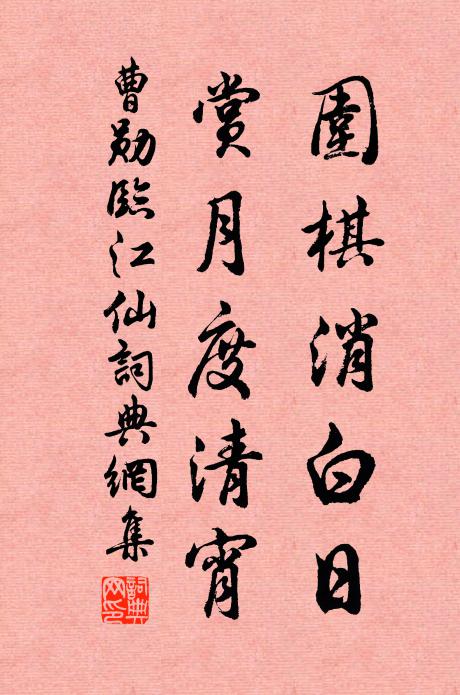 圍棋消白日
賞月度清宵
曹勛臨江仙詞典網集
詞典网印